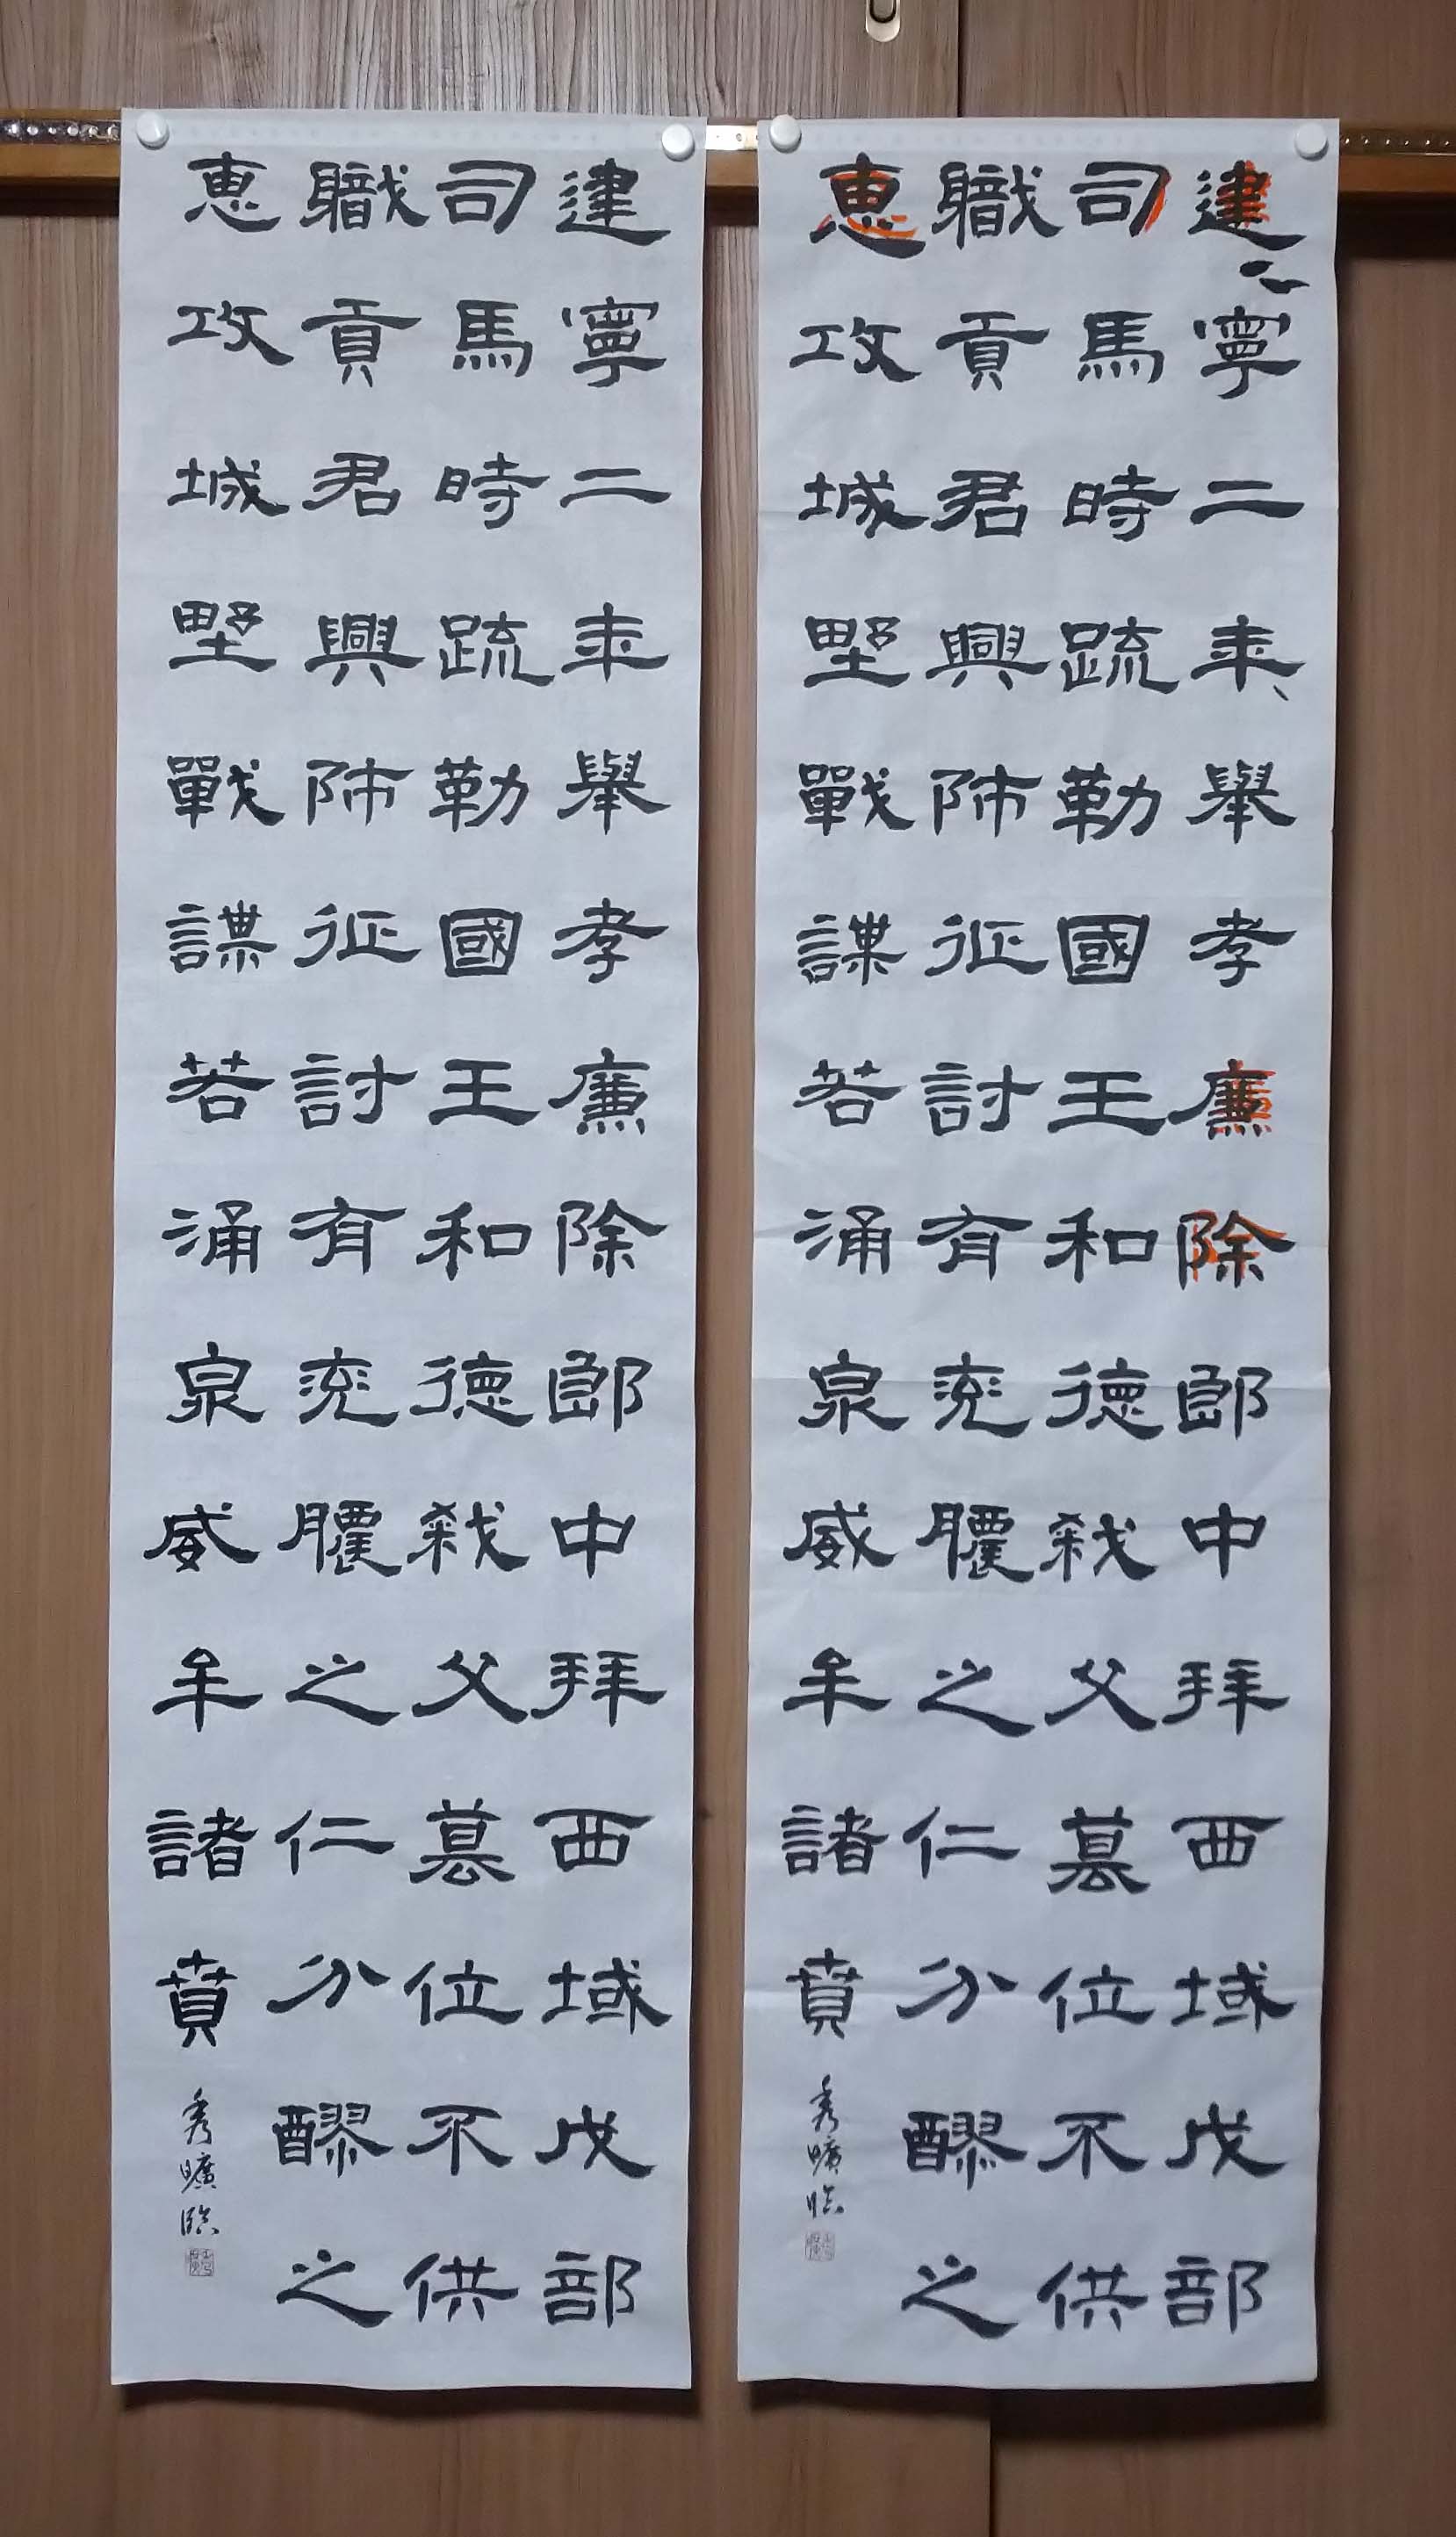 建寧二年舉孝廉除郎中拜西域戊部
司馬時疏勒國王和德弒父篡位不供
職貢君興師征討有兗膿之仁分醪之
惠攻城野戰謀若涌泉威牟諸賁
秀曠臨
建寧二年舉孝廉除郎中拜西域戊部
司馬時疏勒國王和德弒父篡位不供
職貢君興師征討有兗膿之仁分醪之
惠攻城野戰謀若涌泉威牟諸賁
秀曠臨